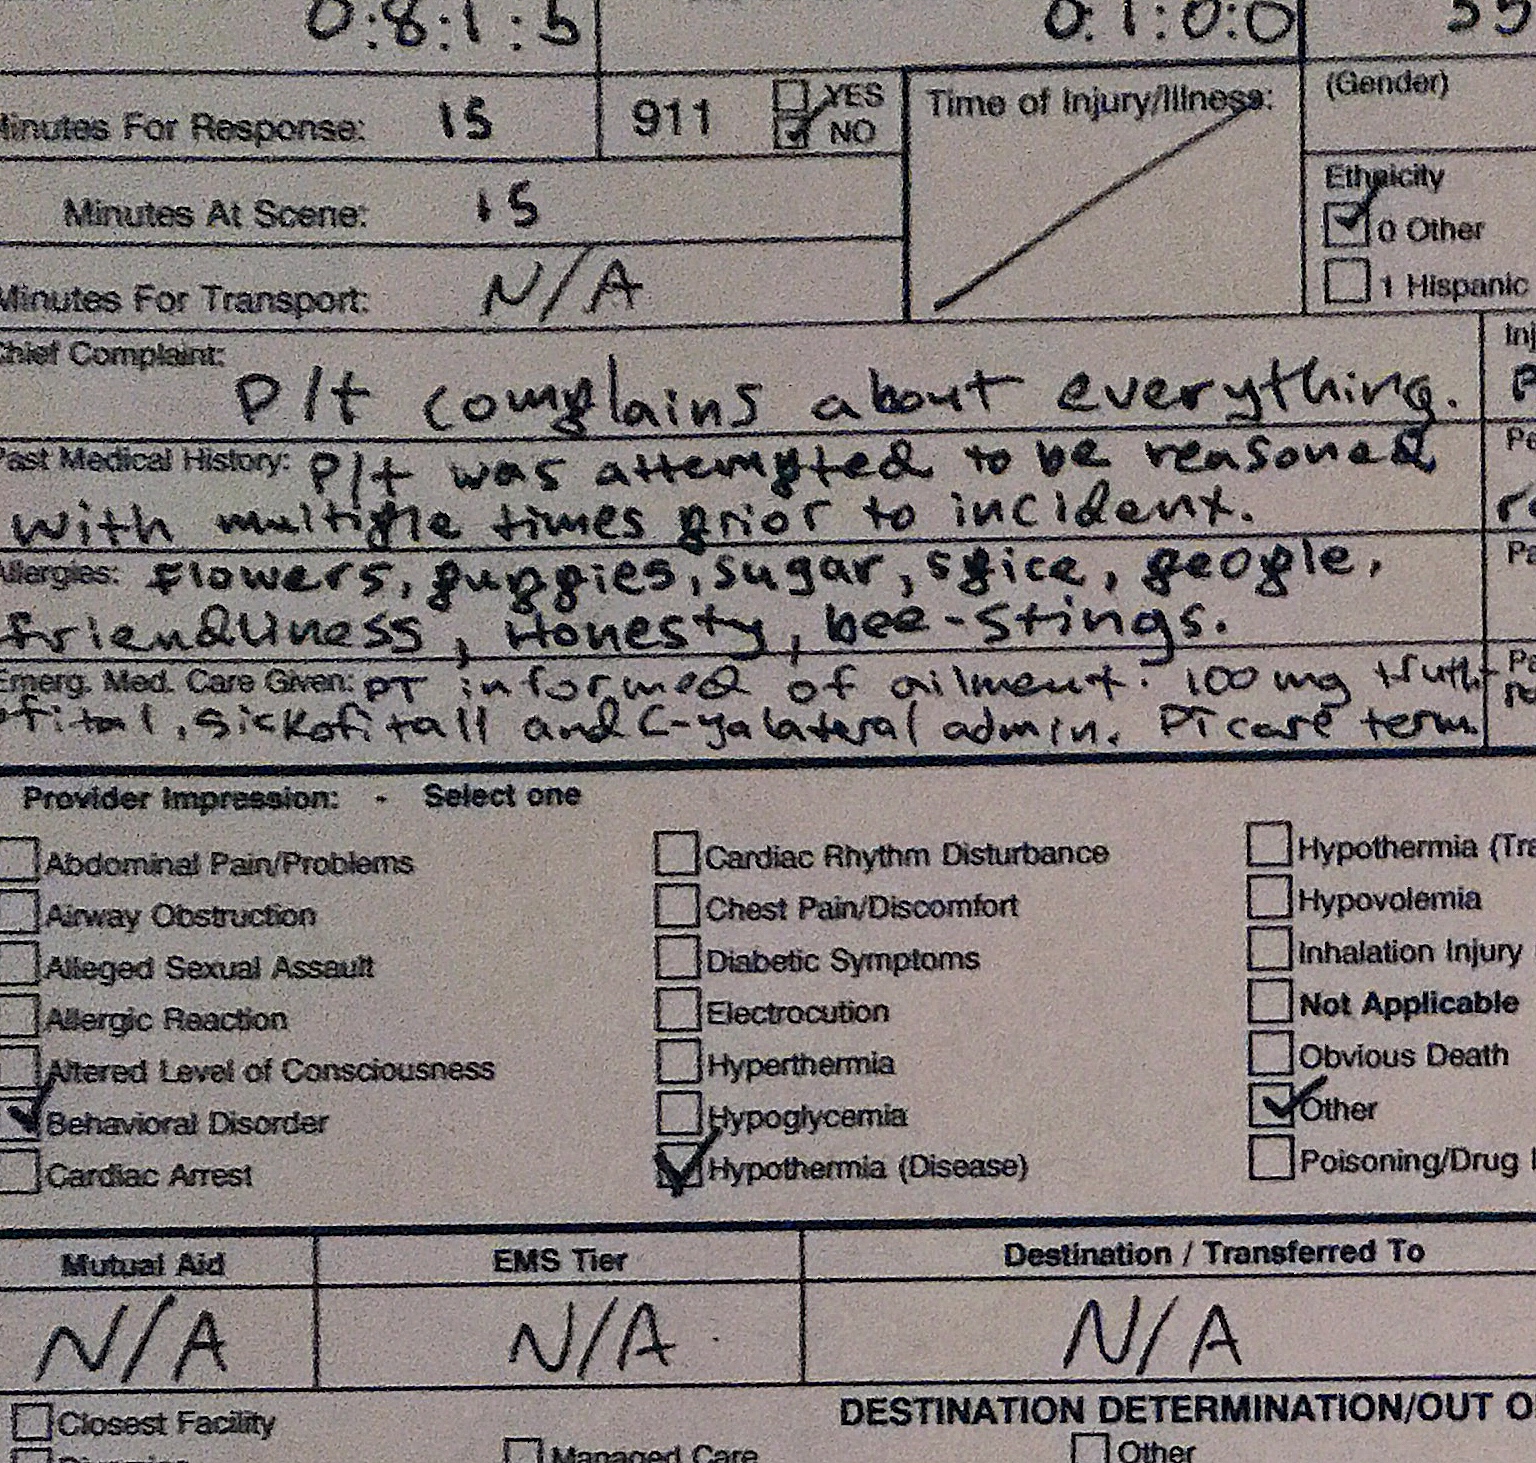 0:8:1:5 0:1:0:0
Minutes For Response: 15 911 YES NO Time of Injury/Illness: (Gender)
Minutes At Scene: 15 Ethnicity
0 Other
Minutes For Transport: N/A 1 Hispanic
Chief Complaint: P/t complains about everything.
Past Medical History: P/t was attempted to be reasoned
with multiple times prior to incident.
Allergies: Flowers, puppies, sugar, spice, people,
friendliness, Honesty, bee-stings.
Emerg. Med. Care Given: PT informed of ailment. 100 mg truth
ofital, sickofitall and C-yalateral admin. PT care term.
Provider Impression: - Select one
Abdominal Pain/Problems Cardiac Rhythm Disturbance Hypothermia (Tra
Airway Obstruction Chest Pain/Discomfort Hypovolemia
Alleged Sexual Assault Diabetic Symptoms Inhalation Injury
Allergic Reaction Electrocution Not Applicable
Altered Level of Consciousness Hyperthermia Obvious Death
Behavioral Disorder Hypoglycemia Other
Cardiac Arrest Hypothermia (Disease) Poisoning/Drug
Mutual Aid EMS Tier Destination / Transferred To
N/A N/A N/A
Closest Facility DESTINATION DETERMINATION/OUT O
Managed Care Other